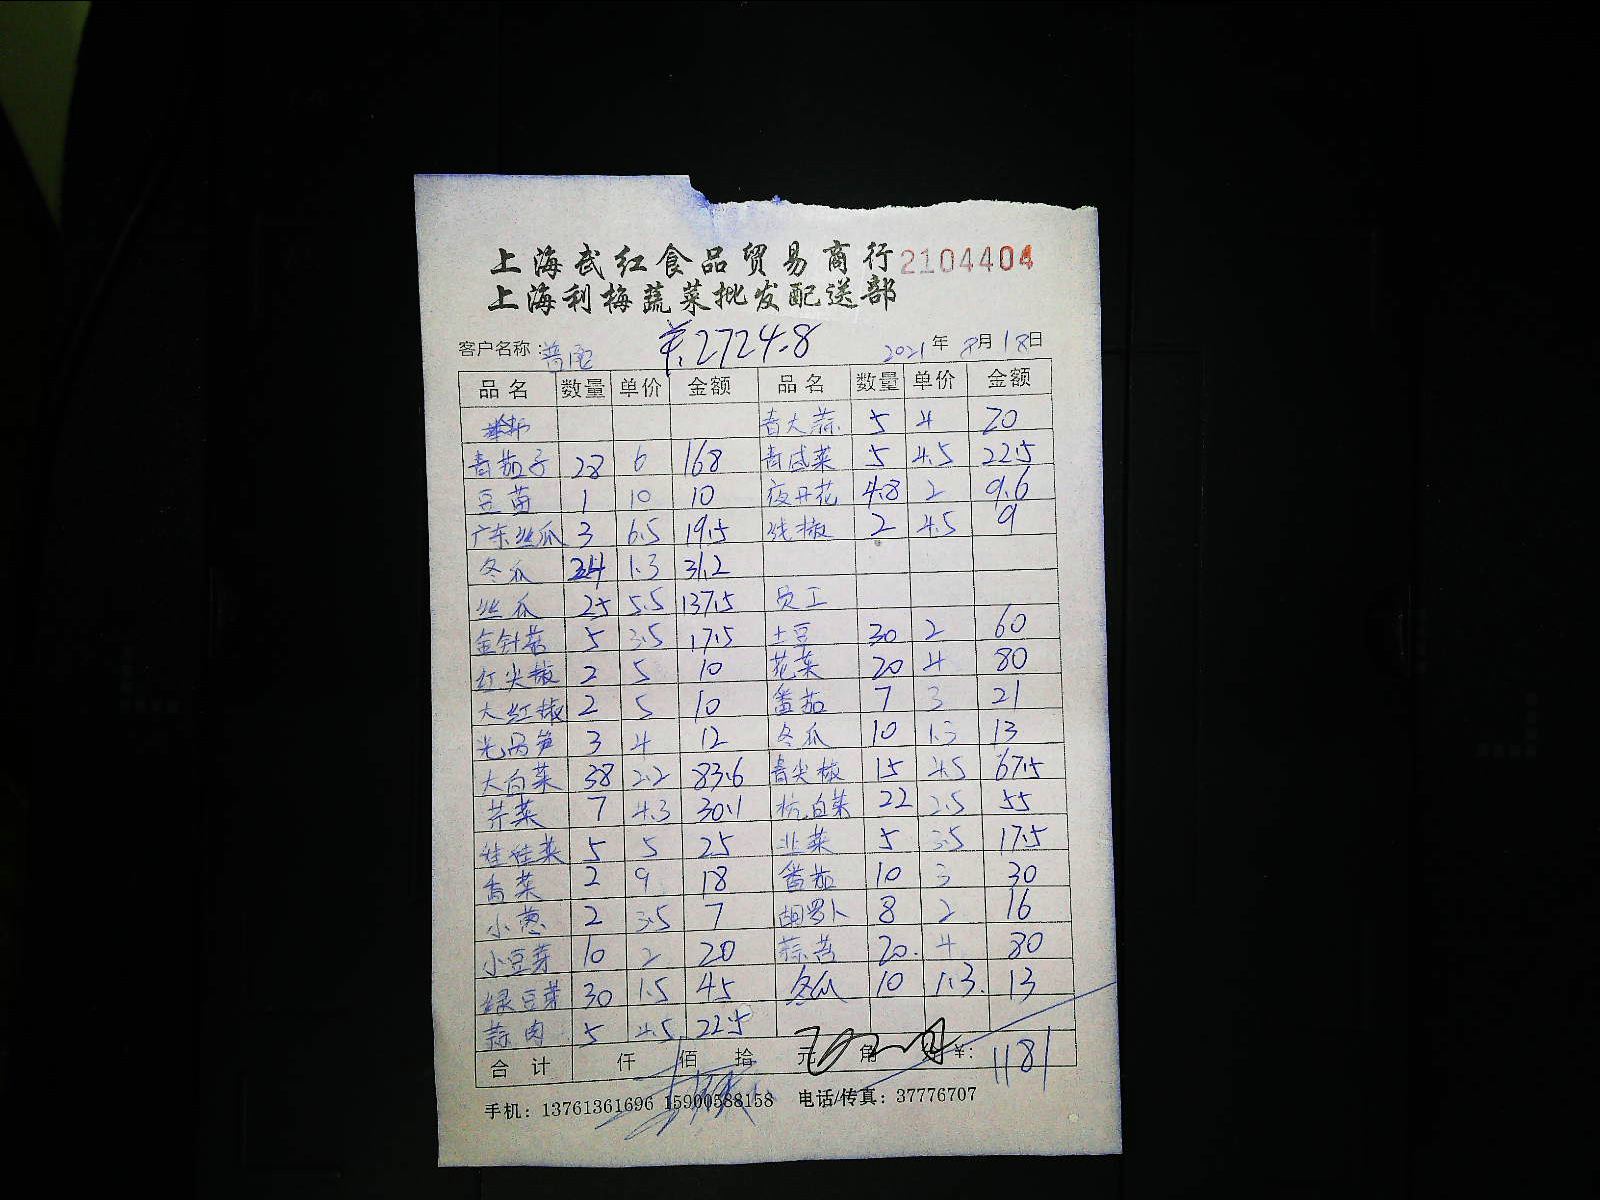 上海武红食品贸易商行 2104404
上海利梅蔬菜批发配送部
客户名称: ¥.2724.8 2021年8月18日
品名 数量 单价 金额 品名 数量 单价 金额
青大蒜 5 4 20
青茄子 28 6 168 青咸菜 5 4.5 22.5
豆苗 1 10 10 夜开花 4.8 2 9.6
广东丝瓜 3 6.5 19.5 线椒 2 4.5 9
冬瓜 24 1.3 31.2
丝瓜 25 5.5 137.5 员工
金针菇 5 3.5 17.5 土豆 30 2 60
红尖椒 2 5 10 花菜 20 4 80
大红椒 2 5 10 番茄 7 3 21
光莴笋 3 4 12 冬瓜 10 1.3 13
大白菜 38 2.2 83.6 青尖椒 15 4.5 67.5
芹菜 7 4.3 30.1 杭白菜 22 2.5 55
娃娃菜 5 5 25 韭菜 5 3.5 17.5
香菜 2 9 18 番茄 10 3 30
小葱 2 3.5 7 胡萝卜 8 2 16
小豆芽 10 2 20 蒜苔 20. 4 80
绿豆芽 30 1.5 45 冬瓜 10 1.3. 13
蒜肉 5 4.5 22.5
合计 仟 佰 拾 元 角 ¥: 1181
手机: 13761361696 15900588158 电话/传真: 37776707